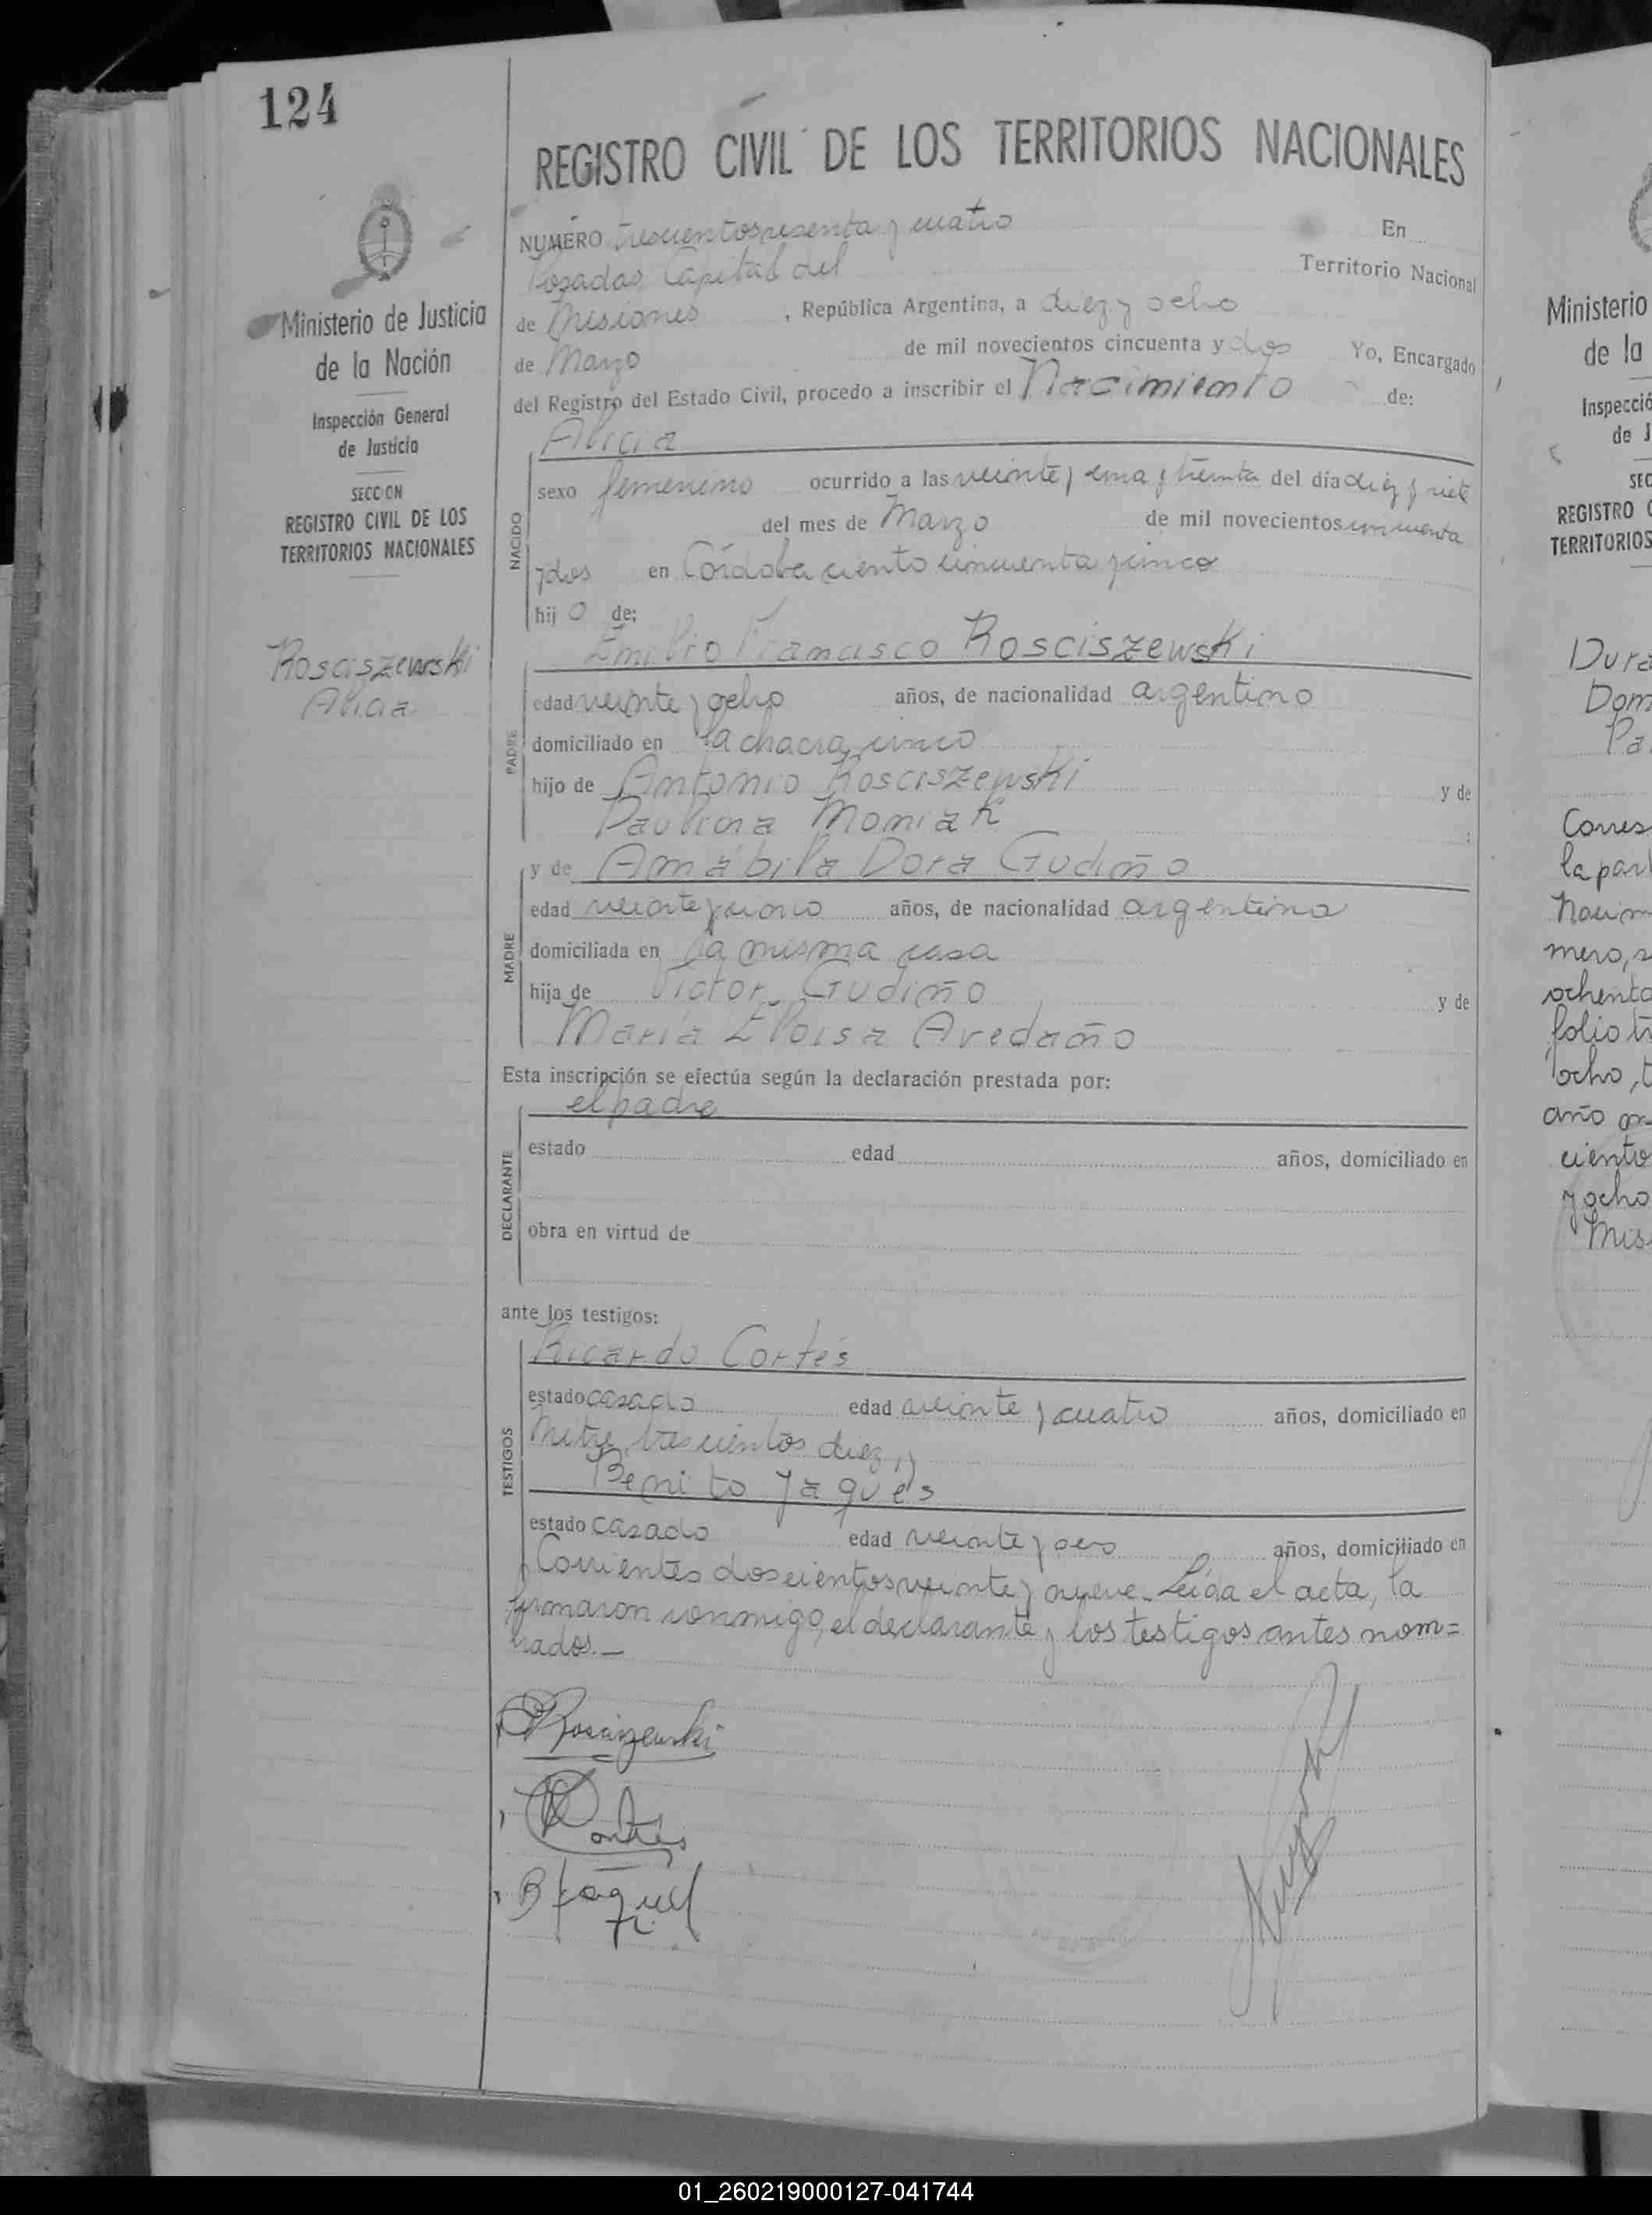 124
REGISTRO CIVIL DE LOS TERRITORIOS NACIONALES
Ministerio de Justicia
de la Nación
Inspección General
de Justicia
SECCION
REGISTRO CIVIL DE LOS
TERRITORIOS NACIONALES
Rosciszewski
Alicia
NUMERO trescientos sesenta y cuatro En
Posadas, Capital del Territorio Nacional
de Misiones, República Argentina, a diez y ocho
de Marzo de mil novecientos cincuenta y dos Yo, Encargado
del Registro del Estado Civil, procedo a inscribir el Nacimiento de:
Alicia
NACIDO
sexo femenino ocurrido a las veinte y una y treinta del día diez y siete
del mes de Marzo de mil novecientos cincuenta
y dos en Córdoba ciento cincuenta y cinco
hij o de:
Emilio Francisco Rosciszewski
PADRE
edad veinte y ocho años, de nacionalidad argentino
domiciliado en la chacra cinco
hijo de Antonio Rosciszewski y de
Paulina Moniak ;
y de Amábila Dora Gudiño
MADRE
edad veinte y cinco años, de nacionalidad argentina
domiciliada en la misma casa
hija de Victor Gudiño y de
María Eloisa Avedaño
Esta inscripción se efectúa según la declaración prestada por:
el padre
DECLARANTE
estado edad años, domiciliado en
obra en virtud de
ante los testigos:
Ricardo Cortés
TESTIGOS
estado casado edad veinte y cuatro años, domiciliado en
Mitre trescientos diez, y
Benito Yaques
estado casado edad veinte y años, domiciliado en
Corrientes doscientos veinte y nueve. Leída el acta, la
firmaron conmigo, el declarante y los testigos antes nom=
brados.—
Rosciszewski
R Cortés
Ministerio
de la
Inspecció
de J
SEC
REGISTRO C
TERRITORIOS
Dura
Dom
Pa
Corres
la part
Nacim
mero, s
ochenta
folio tr
ocho, t
año m
ciento
y ocho
Mis
01_260219000127-041744